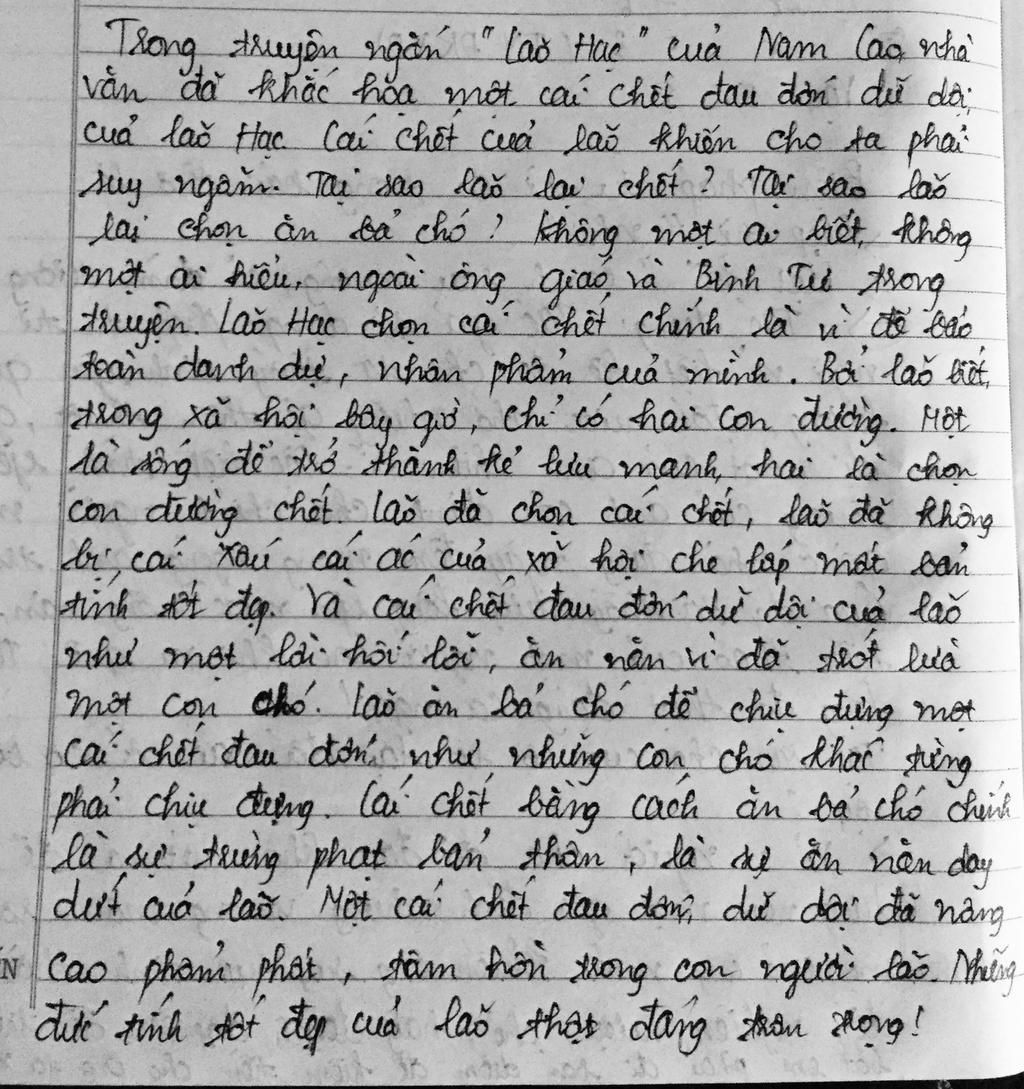 Trong truyện ngắn "Lão Hạc" của Nam Cao, nhà
văn đã khắc họa một cái chết đau đớn dữ dội
của lão Hạc. Cái chết của lão khiến cho ta phải
suy ngẫm. Tại sao lão lại chết? Tại sao lão
lại chọn ăn bả chó? Không một ai biết, không
một ai hiểu, ngoài ông giáo và Binh Tư trong
truyện. Lão Hạc chọn cái chết chính là vì để bảo
toàn danh dự, nhân phẩm của mình. Bởi lão biết,
trong xã hội bây giờ, chỉ có hai con đường. Một
là sống để trở thành kẻ lưu manh, hai là chọn
con đường chết. Lão đã chọn cái chết, lão đã không
bị cái xấu cái ác của xã hội che lấp mất bản
tính tốt đẹp. Và cái chết đau đớn dữ dội của lão
như một lời hối lỗi, ăn năn vì đã trót lừa
một con chó. Lão ăn bả chó để chịu đựng một
cái chết đau đớn, như những con chó khác từng
phải chịu đựng. Cái chết bằng cách ăn bả chó chính
là sự trừng phạt bản thân, là sự ăn năn day
dứt của lão. Một cái chết đau đớn, dữ dội đã nâng
cao phẩm phất, tâm hồn trong con người lão. Những
đức tính tốt đẹp của lão thật đáng trân trọng!
N